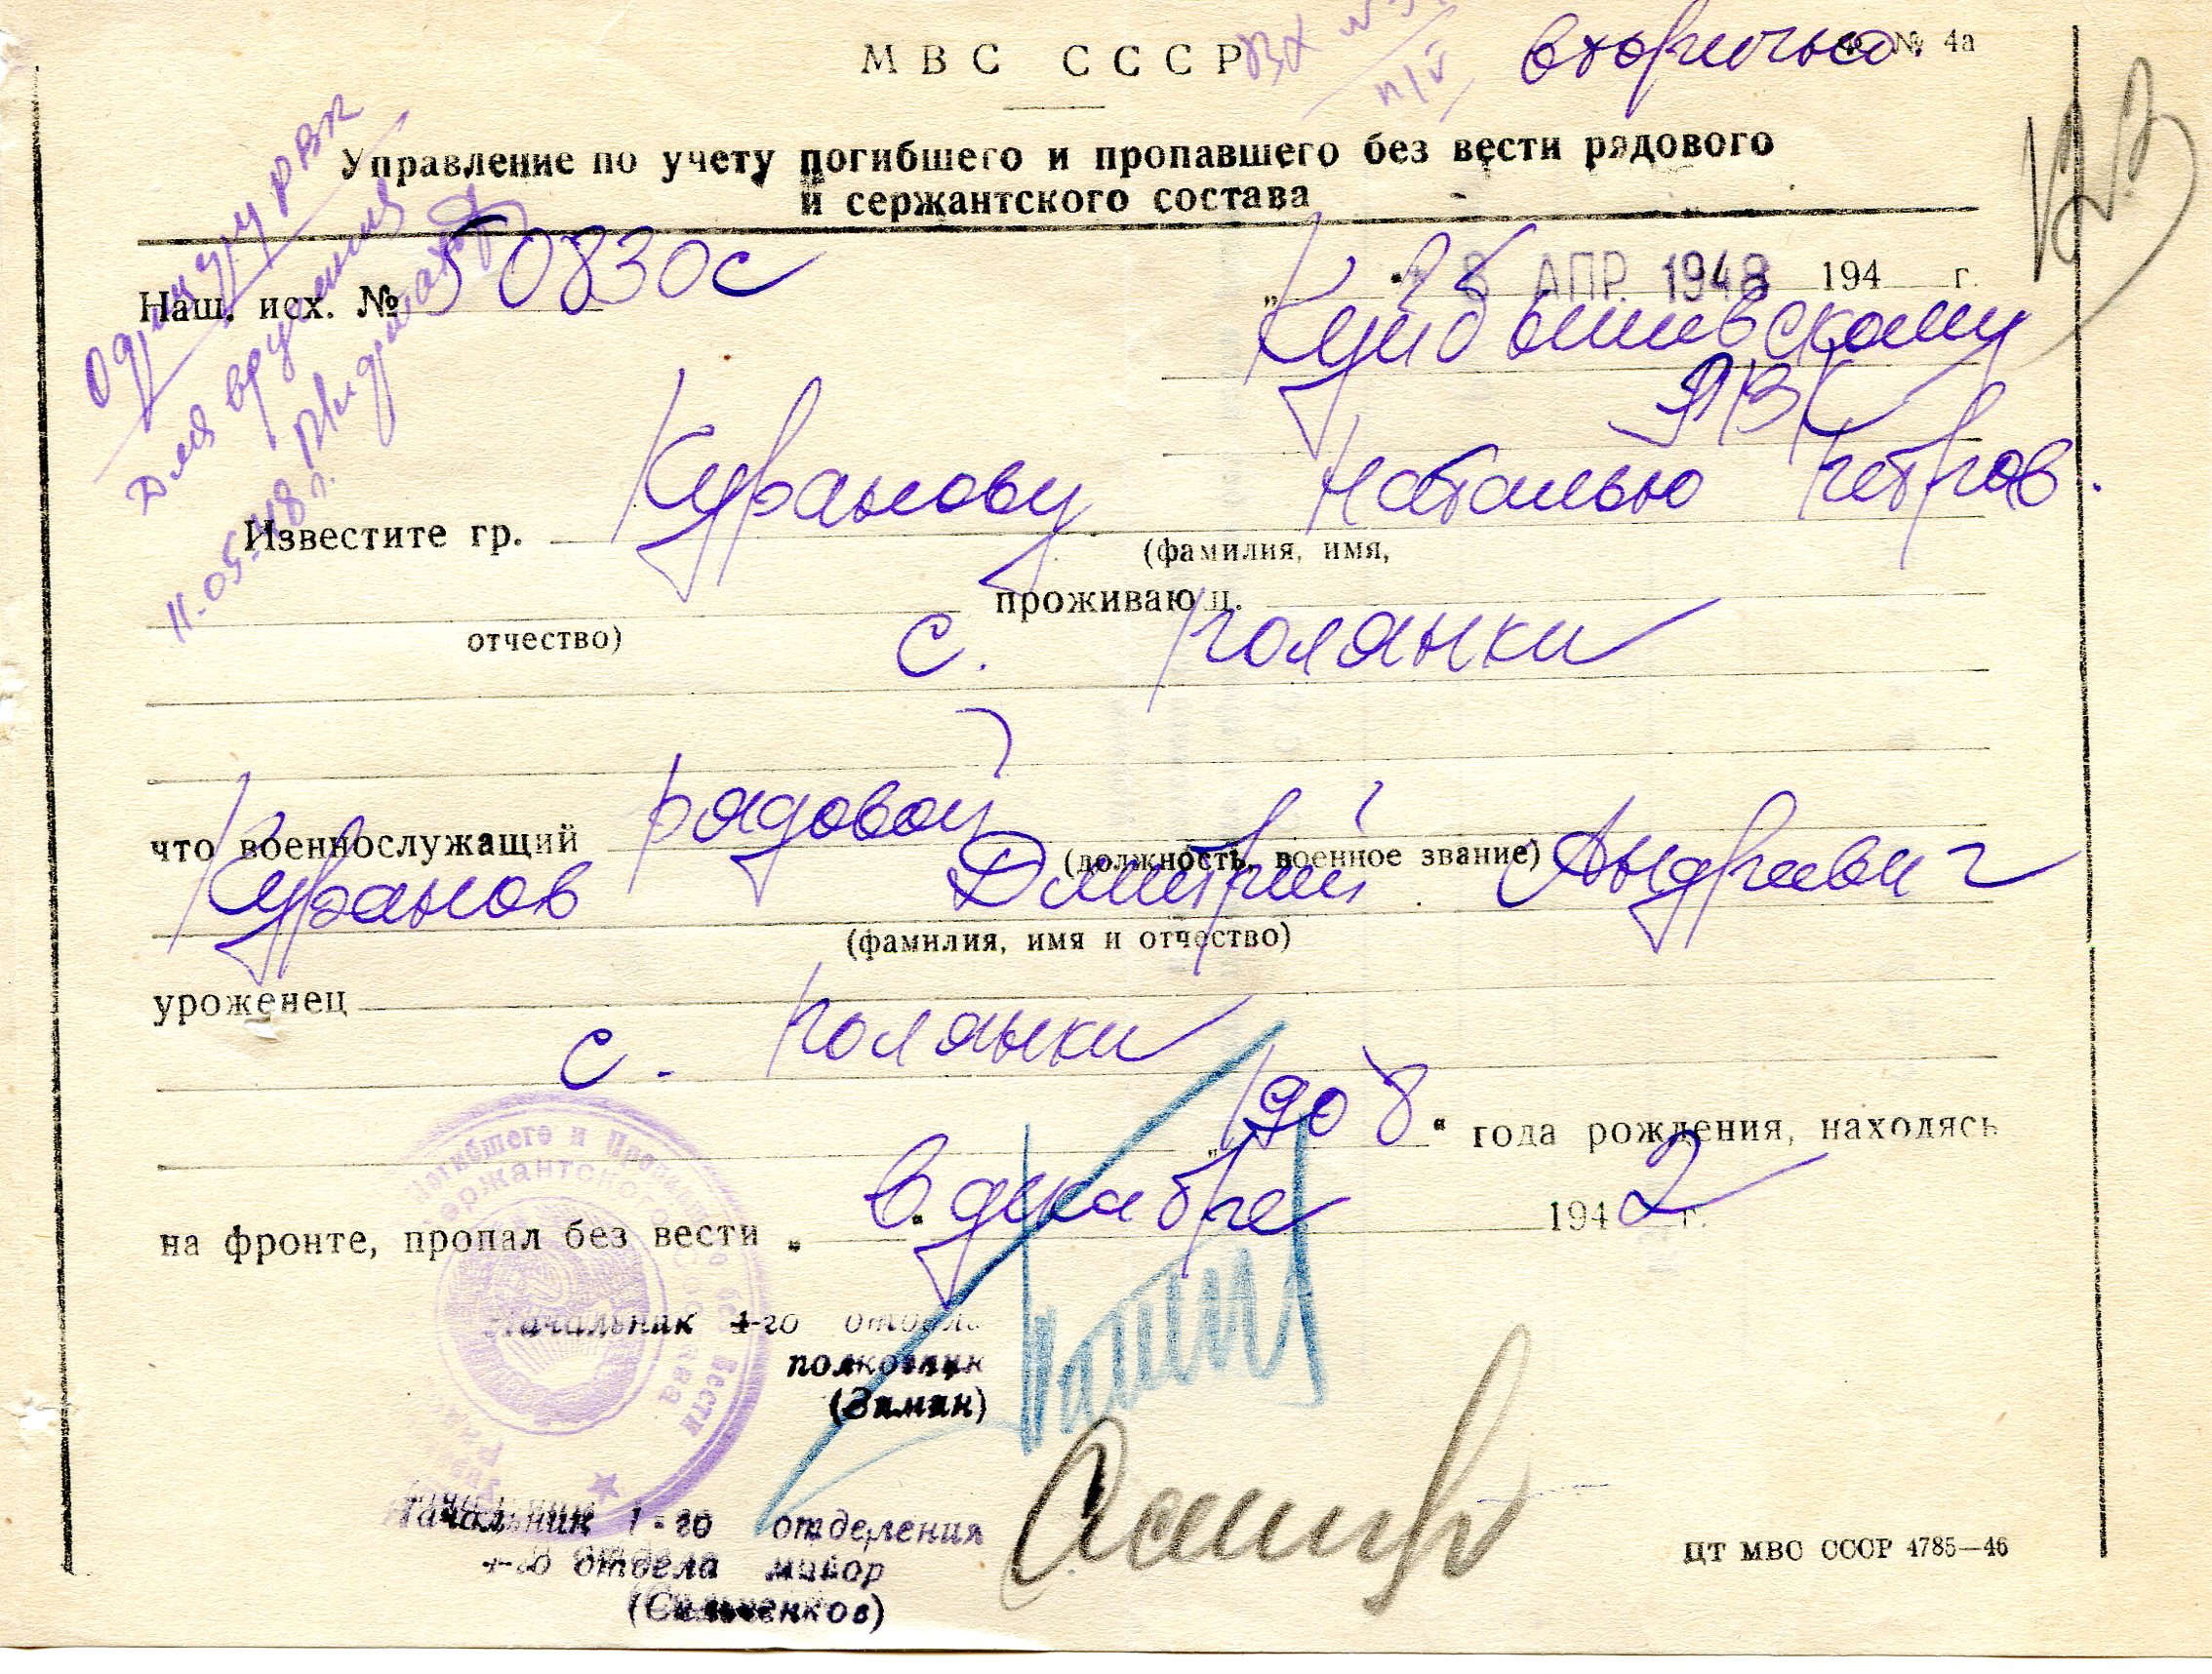 МВС СССР
вторично
№ 4а
Управление по учету погибшего и пропавшего без вести рядового
и сержантского состава
Наш. исх. № 50830с
АПР. 1948 194 г.
Куйбышевскому
РВК
Известите гр. Куранову Наталью Петров.
(фамилия, имя,
проживающ.
отчество)
с. Полянки
что военнослужащий рядовой
(должность, военное звание)
Куранов Дмитрий Андреевич
(фамилия, имя и отчество)
уроженец
с. Полянки
„1908“ года рождения, находясь
на фронте, пропал без вести „ в “ декабре 1942 г.
Начальник 4-го отдела
полковник
(Заман)
Начальник 1-го отделения
4-го отдела майор
(Сильченков)
ЦТ МВС СССР 4785—46
РВК
для вручения
11.05.48 г.